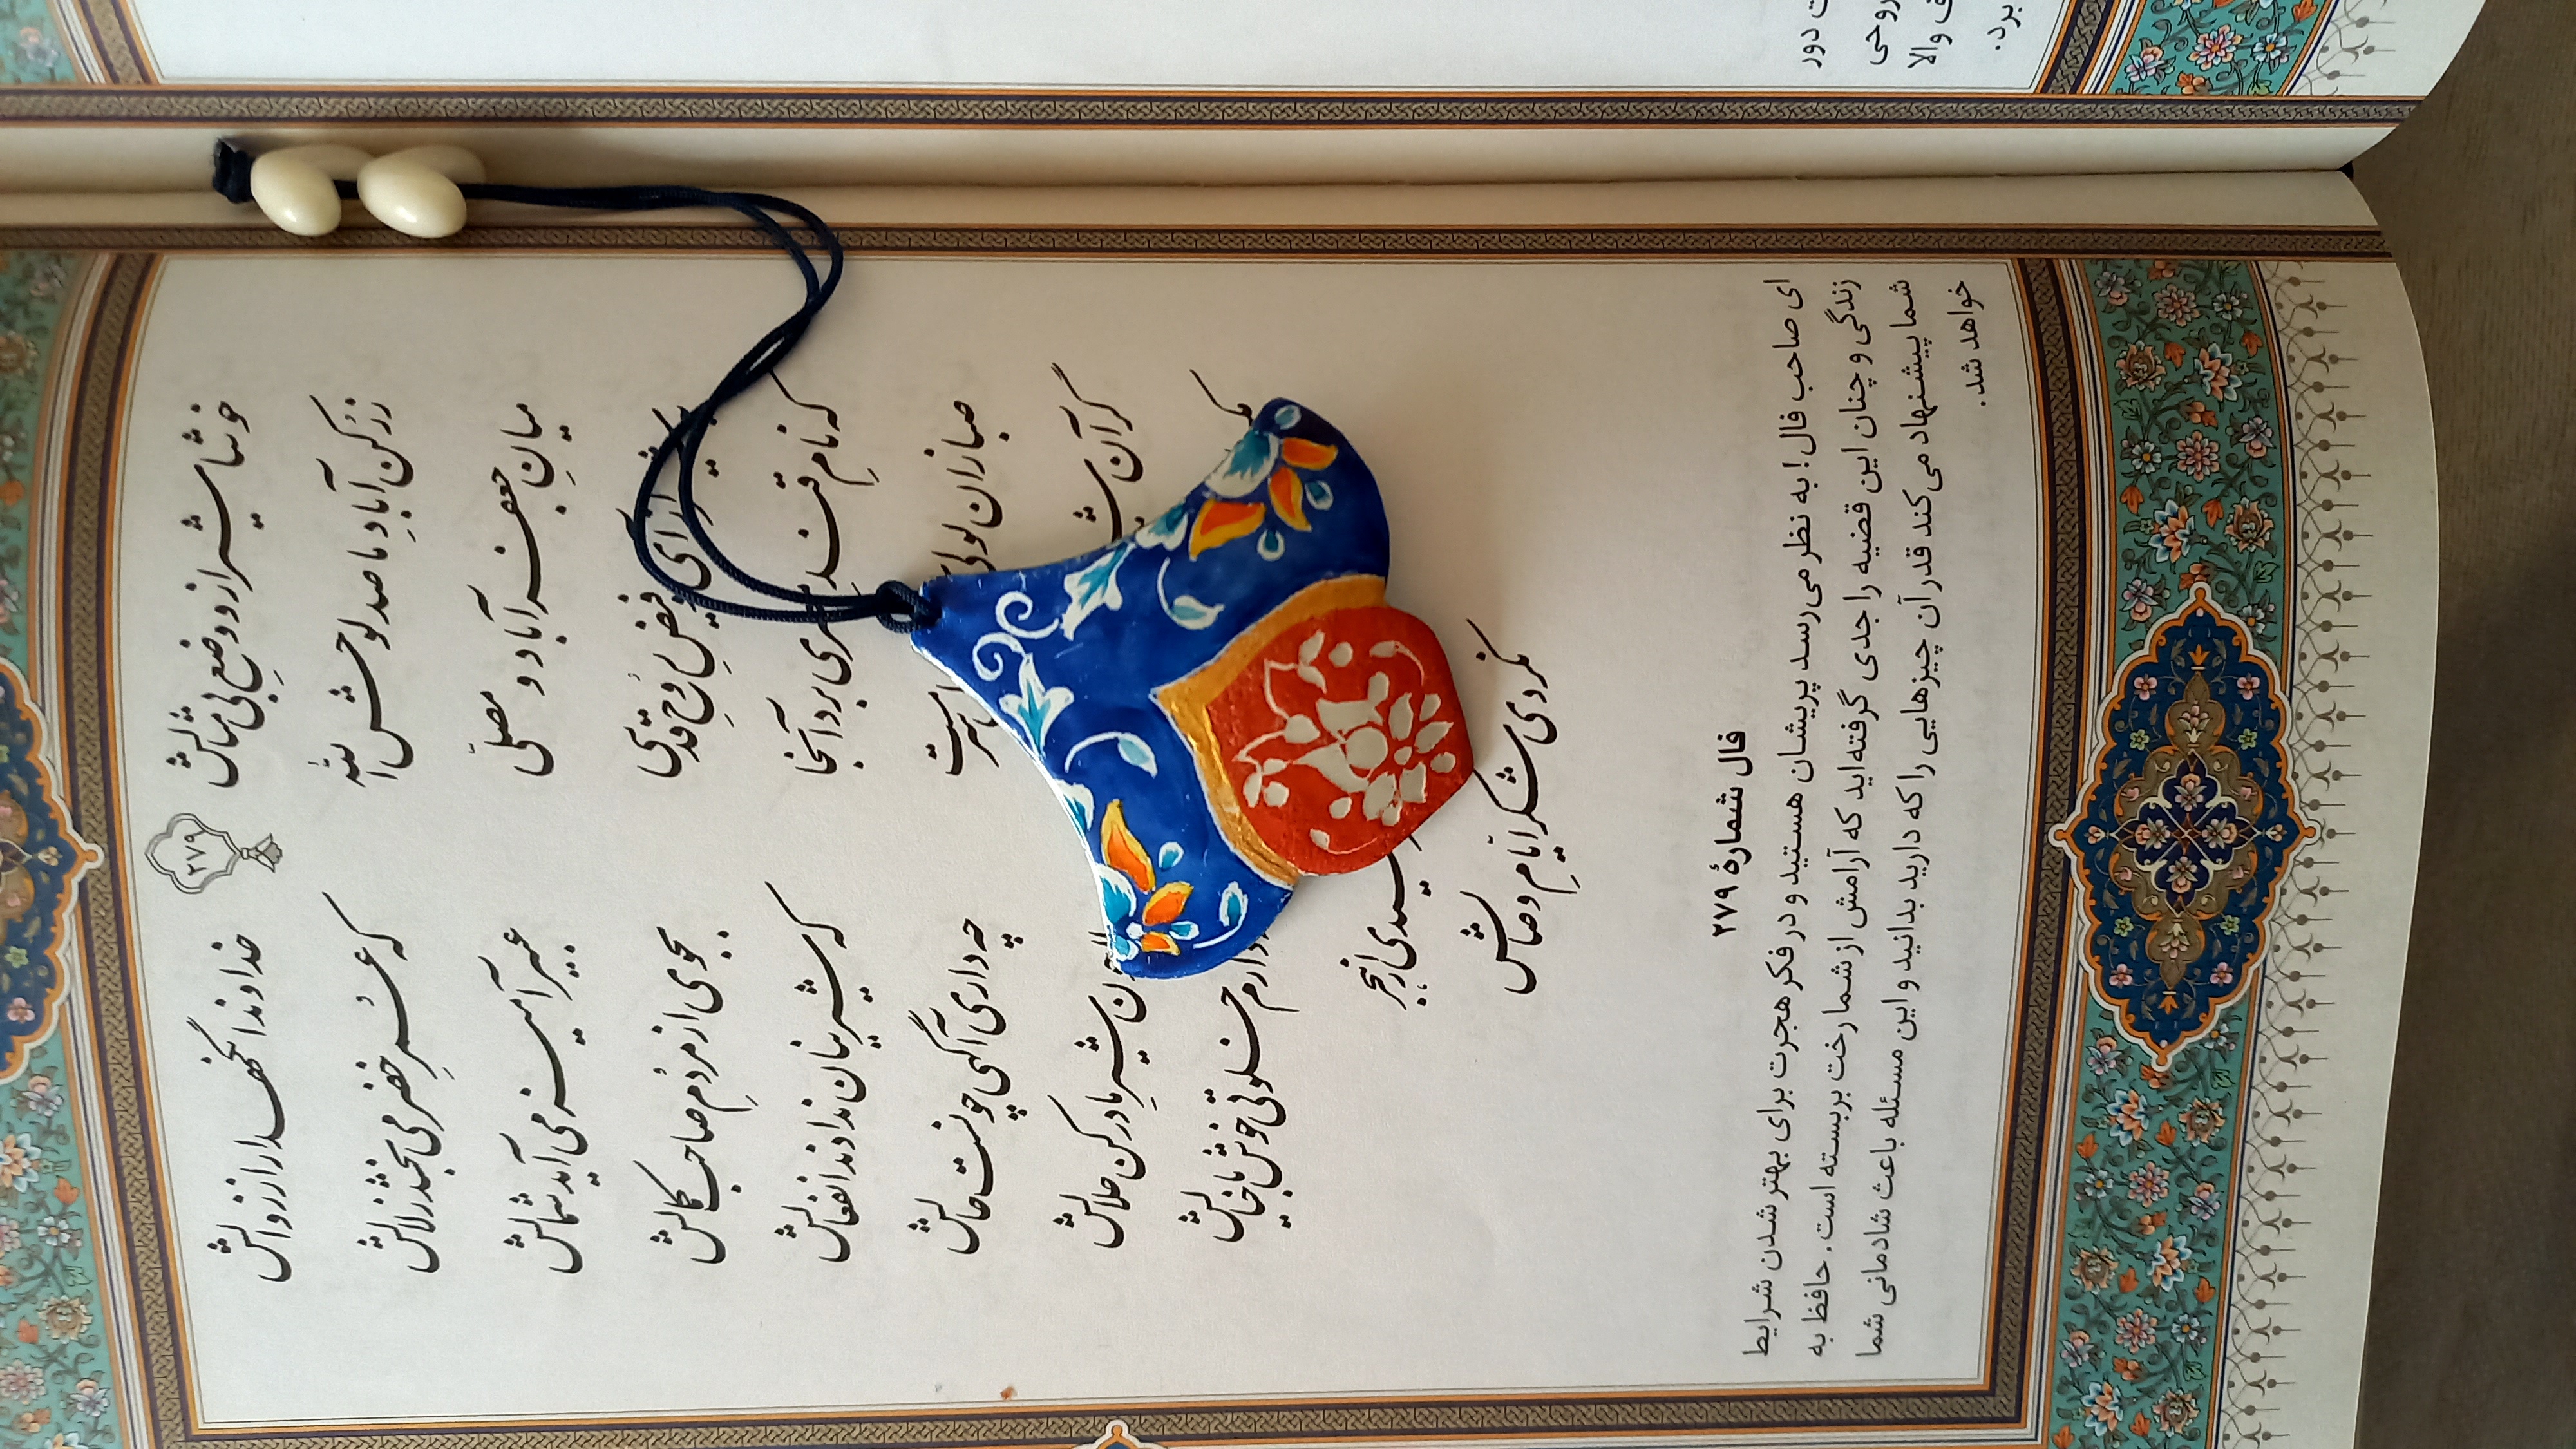 ۲۷۹
خوشا شیراز و وضعِ بی مثالش
خداوندا نگهدار از زوالش
ز رکن آبادِ ما صد لوحش الله
که عُمرِ خضر می بخشد زلالش
میانِ جعفرآباد و مصلّی
عبیرآمیز می آید شمالش
آی فیضِ روحِ قدسی
بجوی از مردُمِ صاحب کمالش
که نامِ قندِ مصری برد آنجا
که شیرینان ندادند انفعالش
صبا زان لولی سرمست
چه داری آگهی چونست حالش
گر آن
شیرِ مادر کن حلالش
دارم خلوتی خوش با خیالش
از هجر
نکردی شکر ایّامِ وصالش
فال شمارهٔ ۲۷۹
ای صاحب فال! به نظر می‌رسد پریشان هستید و در فکر هجرت برای بهتر شدن شرایط
زندگی و چنان این قضیه را جدی گرفته‌اید که آرامش از شما رخت بربسته است. حافظ به
شما پیشنهاد می‌کند قدر آن چیزهایی را که دارید بدانید و این مسئله باعث شادمانی شما
خواهد شد.
دور
روحی
والا
برد.